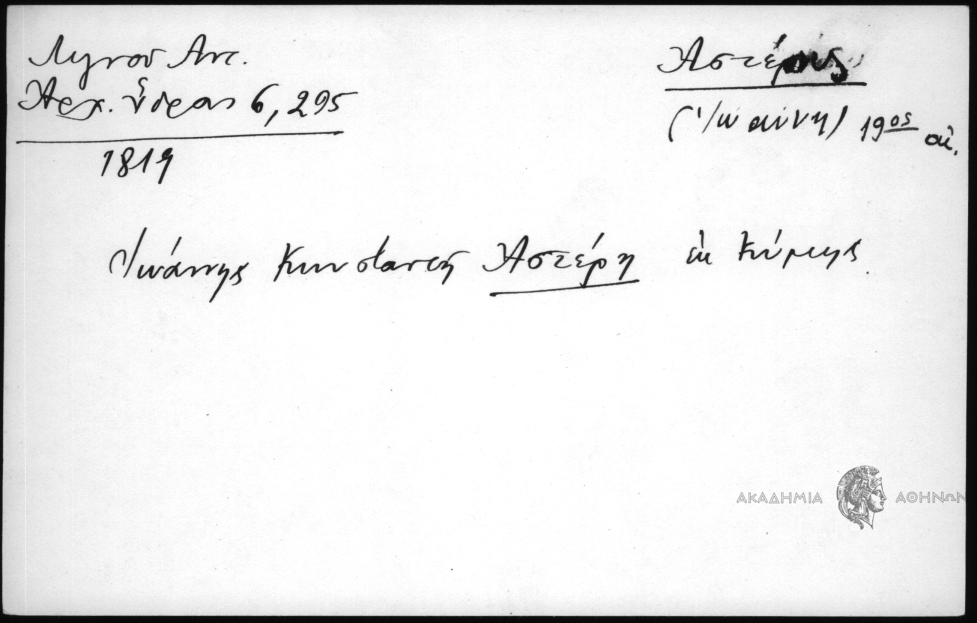 Λιγνού Αντ.
Ἀρχ. Ὕδρας 6, 295
1819
Ἀστέρης
(Ἰωάννη) 19ος αἰ.
Ἰωάννης Κωνσταντῆ Ἀστέρη ἐκ Κύμης
ΑΚΑΔΗΜΙΑ ΑΘΗΝΩΝ